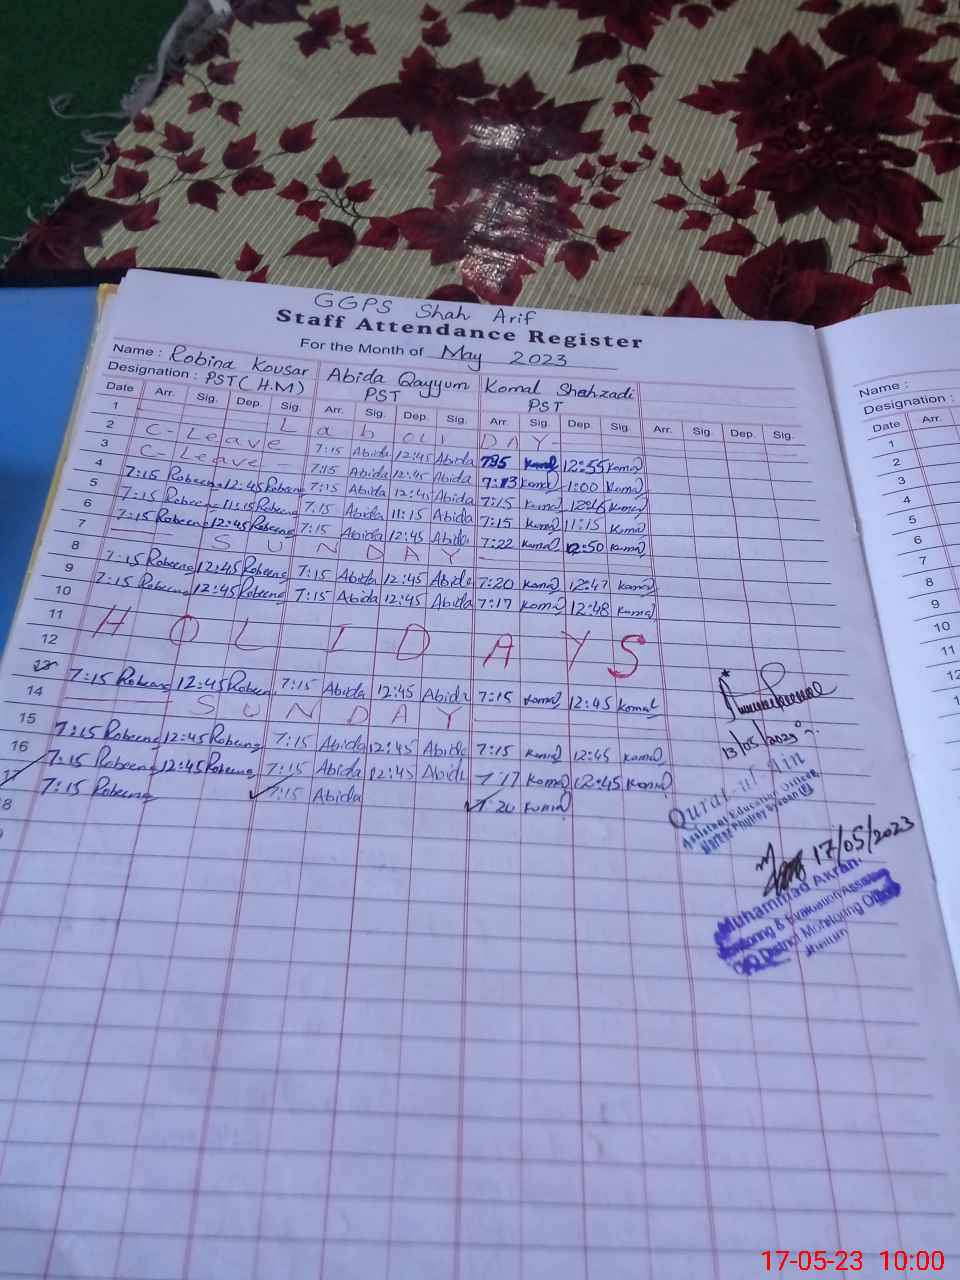 GGPS Shah Arif
Staff Attendance Register
For the Month of May 2023
Name : Robina Kousar Abida Qayyum Komal Shehzadi
Designation : PST (H.M) PST PST
Date Arr. Sig. Dep. Sig. Arr. Sig. Dep. Sig. Arr. Sig. Dep. Sig. Arr. Sig. Dep. Sig.
1 Labour DAY
2 C-Leave 7:15 Abida 12:45 Abida 12:55 Komal
3 C-Leave 7:15 Abida 12:45 Abida 7:13 Komal 1:00 Komal
4 7:15 Robeena 12:45 Robeena 7:15 Abida 12:45 Abida 7:15 Komal Komal
5 7:15 Robeena 11:15 Robeena 7:15 Abida 11:15 Abida 7:15 Komal 11:15 Komal
6 7:15 Robeena 12:45 Robeena 7:15 Abida 12:45 Abida 7:22 Komal 12:50 Komal
7 SUNDAY
8 7:15 Robeena 12:45 Robeena 7:15 Abida 12:45 Abida 7:20 Komal 12:47 Komal
9 7:15 Robeena 12:45 Robeena 7:15 Abida 12:45 Abida 7:17 Komal 12:48 Komal
10
11 HOLIDAYS
12
13 7:15 Robeena 12:45 Robeena 7:15 Abida 12:45 Abida 7:15 Komal 12:45 Komal
14 SUNDAY
15 7:15 Robeena 12:45 Robeena 7:15 Abida 12:45 Abida 7:15 Komal 12:45 Komal
16 7:15 Robeena 12:45 Robeena 7:15 Abida 12:45 Abida 7:17 Komal 12:45 Komal
17 7:15 Robeena 7:15 Abida 7:20 Komal
8
13/05/2023
Qurat-ul-Ain
Assistant Education Officer
Markaz
17/05/2023
Muhammad Akran
Monitoring & Evaluation Assistant
District Monitoring Officer
Name :
Designation :
Date Arr.
1
2
3
4
5
6
7
8
9
10
11
12
17-05-23 10:00